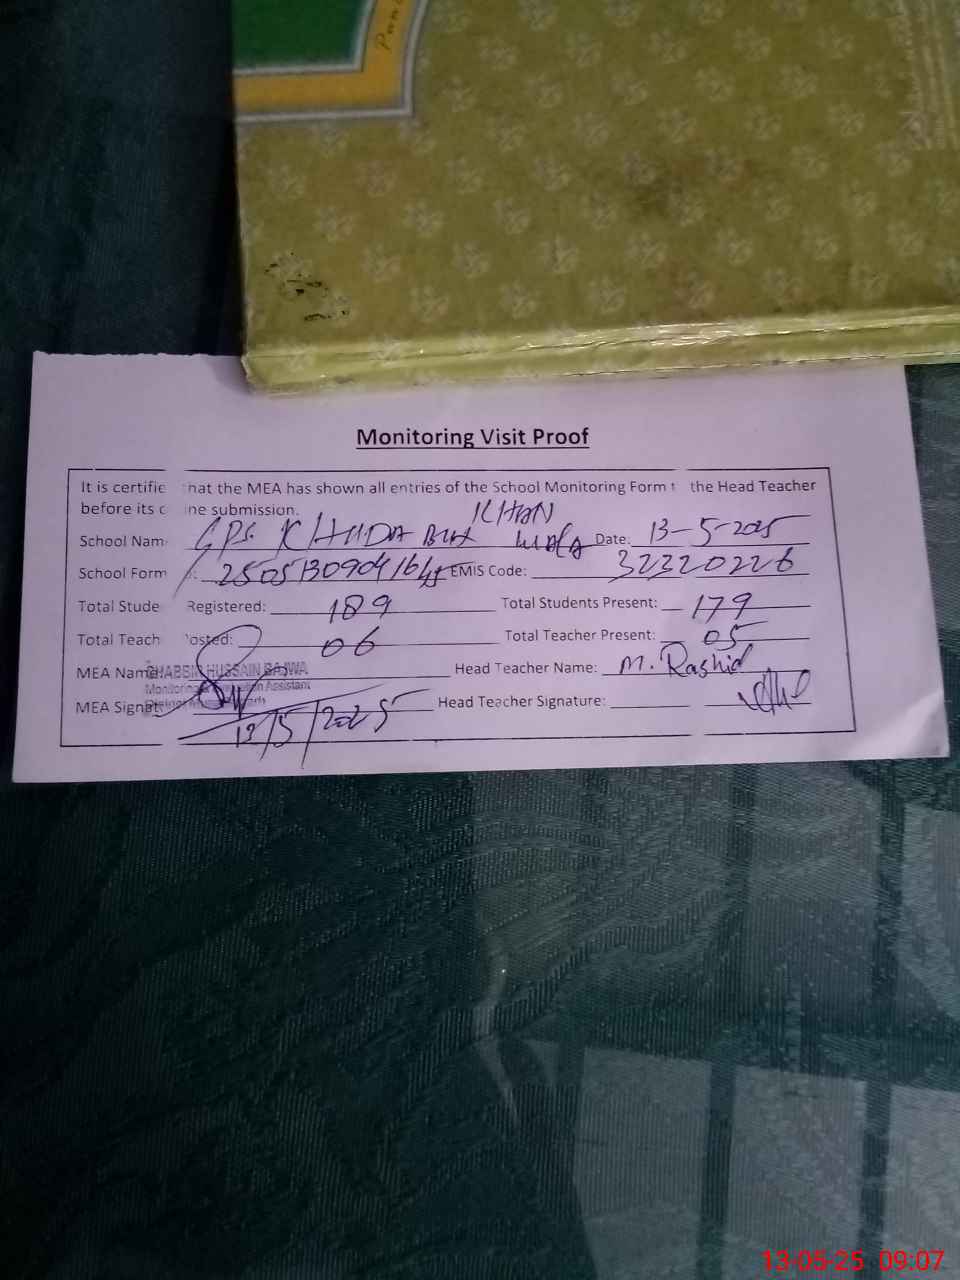 Monitoring Visit Proof
It is certifie hat the MEA has shown all entries of the School Monitoring Form t the Head Teacher
before its o ine submission.
School Nam GPS KHUDA BUX KHAN Wala Date: 13-5-2025
School Form EMIS Code: 32320226
Total Stude Registered: 189 Total Students Present: 179
Total Teach Posted: 06 Total Teacher Present: 05
MEA Name HUSSAIN BAJWA Head Teacher Name: M. Rashid
Monitoring Assistant
MEA Signat Head Teacher Signature:
13/5/2025
13-05-25 09:07